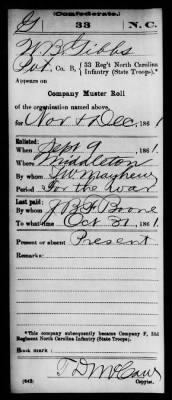 (Confederate.)
G 33 N.C.
W B Gibbs
Pvt, Co. B, 33 Reg't North Carolina
Infantry (State Troops).*
Appears on
Company Muster Roll
of the organization named above,
for Nov & Dec, 1861
Enlisted:
When Sept 9, 1861.
Where Middleton
By whom W Mayhew
Period For the war
Last paid:
By whom J B F Boone
To what time Oct 31, 1861.
Present or absent Present
Remarks:
*This company subsequently became Company F, 33d
Regiment North Carolina Infantry (State Troops).
Book mark:
(642) Copyist.